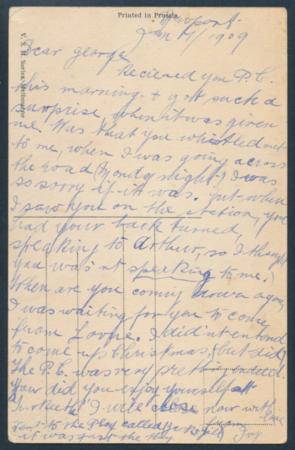 Printed in Prussia.
V. S. M. Series
Jan 4/1909
Dear George
Recieved you P.C.
this morning & got such a
surprise when it was given
me. Was that you whistled out
to me, when I was going across
the road (
night) I was
so sorry if it was. but when
I saw you on the station, you
had your back turned,
speaking to Arthur, so I thought
you was'nt speaking to me.
When are you coming down again,
I was waiting for you to come
from I did'nt intend
to come up Christmas (but did)
The P.C. was very pretty indeed
How did you enjoy yourself at
I will close now with love
from
went to the Play called
it was just the